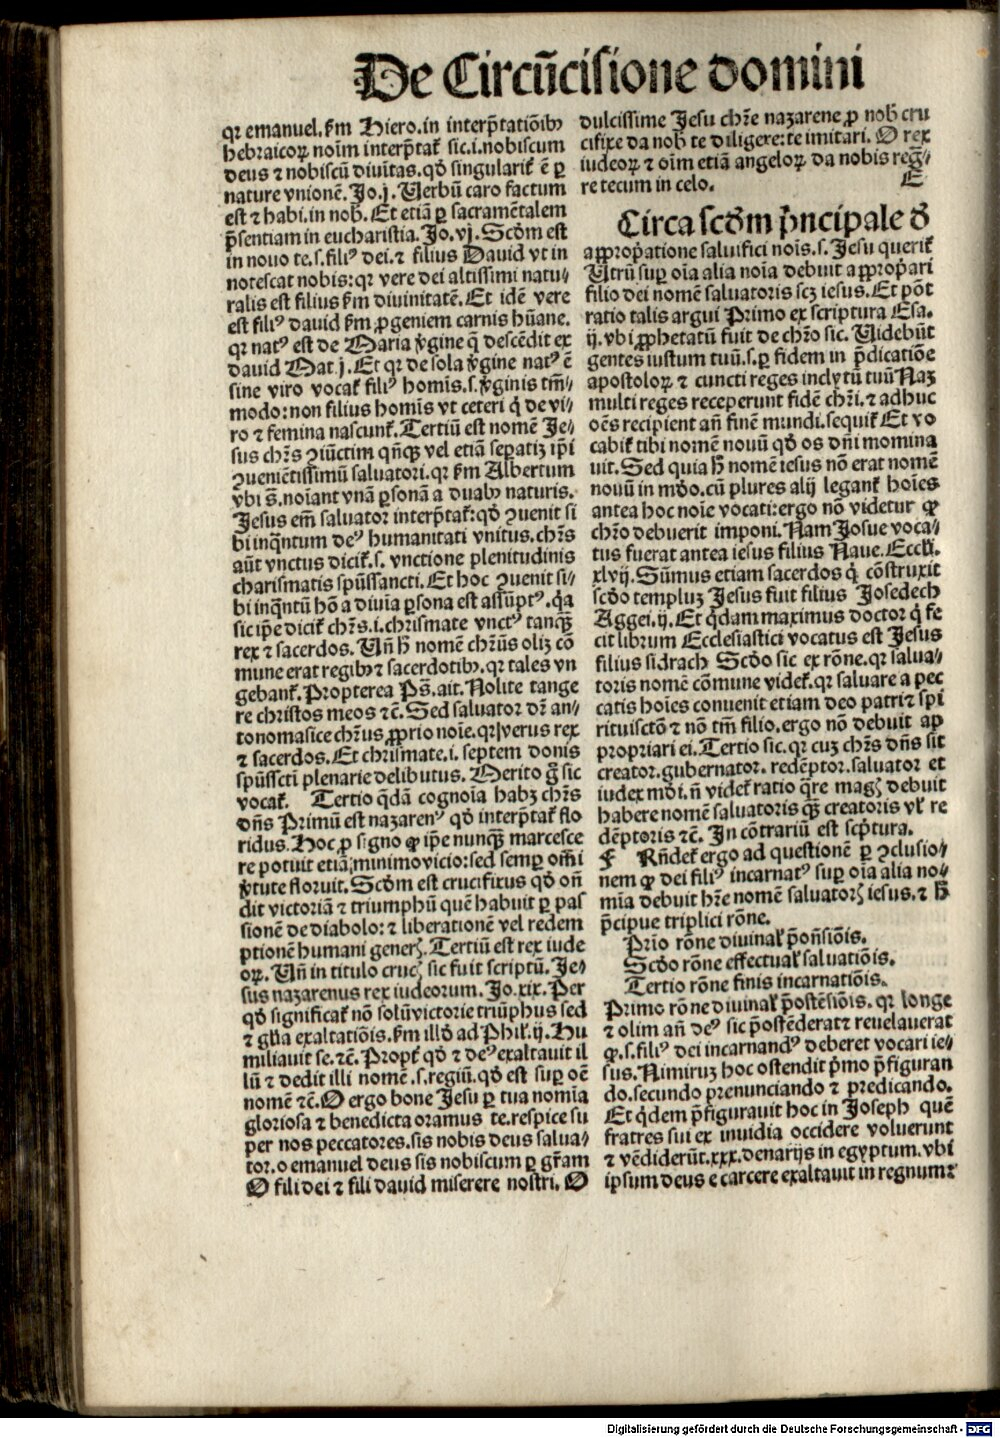 De Circũcisione domini
qꝛ emanuel. ẜm Hiero. in interp̃tatiõibꝫ
hebraicoꝝ noĩm interp̃tať sic .i. nobiscum
deus ⁊ nobiscũ diuĩtas. qð singulariť ẽ ꝑ
nature vnionẽ. Jo. j. Uerbũ caro factum
est ⁊ habi. in nob̃. Et etiã ꝑ sacramẽtalem
p̃sentiam in eucharistia. Jo. vj. Scðm est
in nouo te. s. filiꝰ dei. ⁊ filius Dauid vt in
notescat nobis: qꝛ vere dei altissimi natu⸗
ralis est filius ẜm diuinitatẽ. Et idẽ vere
est filiꝰ dauid ẜm ꝓgeniem carnis hũane.
qꝛ natꝰ est de Maria ṽgine q̃ descẽdit ex
dauid Mat. j. Et qꝛ de sola ṽgine natꝰ ẽ
sine viro vocať filiꝰ homĩs. s. ṽginis tm̃⸗
modo: non filius homĩs vt ceteri q̇ de vi⸗
ro ⁊ femina nascunť. Tertiũ est nomẽ Je⸗
sus chr̃s ꝯiũctim qñqꝫ vel etiã sepatiꝫ ip̃i
ꝯueniẽtissimũ saluatori. qꝛ ẜm Albertum
vbi s̃. noĩant vnã ꝑsonã a duabꝫ naturis.
Jesus em̃ saluator interp̃tať: qð ꝯuenit si
bi inq̃ntum deꝰ humanitati vnitus. chr̃s
aũt vnctus diciť. s. vnctione plenitudinis
charismatis spũssancti. Et hoc ꝯuenit si⸗
bi inq̃ntũ hõ a diuĩa ꝑsona est assũptꝰ. q̇a
sic ip̃e diciť chr̃s .i. chrismate vnctꝰ tanqꝫ
rex ⁊ sacerdos. Uñ h̃ nomẽ chr̃us oliꝫ cõ
mune erat regibꝫ ⁊ sacerdotibꝫ. qꝛ tales vn
gebanť. Propterea Ps̃. ait. Nolite tange
re christos meos ⁊c̃. Sed saluator dr̃ an⸗
tonomasice chr̃us ꝓprio noĩe. qꝛ verus rex
⁊ sacerdos. Et chrismate .i. septem donis
spũssctĩ plenarie delibutus. Merito g̃ sic
vocať. Tertio q̃dã cognoĩa habꝫ chr̃s
dñs Primũ est nazarenꝰ qð interp̃tať flo
ridus. Hoc ꝓ signo ꝙ ip̃e nunqꝫ marcesce
re potuit etiã minimo vicio: sed semꝑ om̃i
ṽtute floruit. Scðm est crucifixus qð oñ
dit victoriã ⁊ triumphũ quẽ habuit ꝑ pas
sionẽ de diabolo: ⁊ liberationẽ vel redem
ptionẽ humani generꝭ. Tertiũ est rex iude
oꝝ. Uñ in titulo crucꝭ sic fuit scriptũ. Je⸗
sus nazarenus rex iudeorum. Jo. xix. Per
qð significať nõ solũ victorie triũphus sed
⁊ gl̃ia exaltatiõis. ẜm illð ad Phil̃. ij. Hu
miliauit se. ⁊c̃. Propť qð ⁊ deꝰ exaltauit il
lũ ⁊ dedit illi nomẽ .s. regiũ. qð est suꝑ oẽ
nomẽ ⁊c̃. O ergo bone Jesu ꝑ tua nomĩa
gloriosa ⁊ benedicta oramus te. respice su
per nos peccatores. sis nobis deus salua⸗
tor. o emanuel deus sis nobiscum ꝑ gr̃am
O fili dei ⁊ fili dauid miserere nostri. O
dulcissime Jesu chr̃e nazarene ꝓ nob̃ cru
cifixe da nob̃ te diligere: te imitari. O rex
iudeoꝝ ⁊ oĩm etiã angeloꝝ da nobis reg̃⸗
re tecum in celo. E
Circa scðm p̃ncipale ð
aꝓprop̃atione saluifici noĩs. s. Jesu queriť
Utrũ suꝑ oĩa alia noĩa debuit aꝓprop̃ari
filio dei nomẽ saluatoris scꝫ iesus. Et põt
ratio talis argui Primo ex scriptura Esa.
ij. vbi ꝓphetatũ fuit de chr̃o sic. Uidebũt
gentes iustum tuũ. s. ꝑ fidem in p̃dicatiõe
apostoloꝝ ⁊ cuncti reges inclytũ tuũ Naꝫ
multi reges receperunt fidẽ chr̃i. ⁊ adhuc
oẽs recipient añ finẽ mundi. sequiť Et vo
cabiť tibi nomẽ nouũ qð os dñi nomina
uit. Sed quia h̃ nomẽ iesus nõ erat nomẽ
nouũ in mðo. cũ plures alij leganť hoĩes
antea hoc noĩe vocati: ergo nõ videtur ꝙ
chr̃o debuerit imponi. Nam Josue voca⸗
tus fuerat antea iesus filius Naue. Eccl̃i.
xlvij. Sũmus etiam sacerdos q̇ cõstruxit
scðo templuꝫ Jesus fuit filius Josedech
Aggei. ij. Et q̇dam maximus doctor q̇ fe
cit librum Ecclesiastici vocatus est Jesus
filius sidrach Scðo sic ex rõne. qꝛ salua⸗
toris nomẽ cõmune videť. qꝛ saluare a pec
catis hoĩes conuenit etiam deo patri ⁊ spi
rituisctõ ⁊ nõ tm̃ filio. ergo nõ debuit ap
propriari ei. Tertio sic. qꝛ cuꝫ chr̃s dñs sit
creator. gubernator. redẽptor. saluator et
iudex mði. ñ videť ratio q̃re magꝭ debuit
habere nomẽ saluatoris qꝫ creatoris vl̃ re
dẽptoris ⁊c̃. In cõtrariũ est scp̃tura.
F Rñdeť ergo ad questionẽ ꝑ ꝯclusio⸗
nem ꝙ dei filiꝰ incarnatꝰ suꝑ oĩa alia no⸗
mĩa debuit hr̃e nomẽ saluatorꝭ iesus. ⁊ h̃
p̃cipue triplici rõne.
Prĩo rõne diuinal̃ p̃oñsiõis.
Scðo rõne effectual̃ saluatiõis.
Tertio rõne finis incarnatiõis.
Primo rõne diuinal̃ p̃ostẽsiõis. qꝛ longe
⁊ olim añ deꝰ sic p̃ostẽderat ⁊ reuelauerat
ꝙ .s. filiꝰ dei incarnandꝰ deberet vocari ie⸗
sus. Nimiruꝫ hoc ostendit p̃mo p̃figuran
do. secundo prenunciando ⁊ predicando.
Et q̇dem p̃figurauit hoc in Joseph quẽ
fratres sui ex inuidia occidere voluerunt
⁊ vẽdiderũt .xxx. denarijs in egyptum. vbi
ipsum deus e carcere exaltauit in regnum:
Digitalisierung gefördert durch die Deutsche Forschungsgemeinschaft - DFG